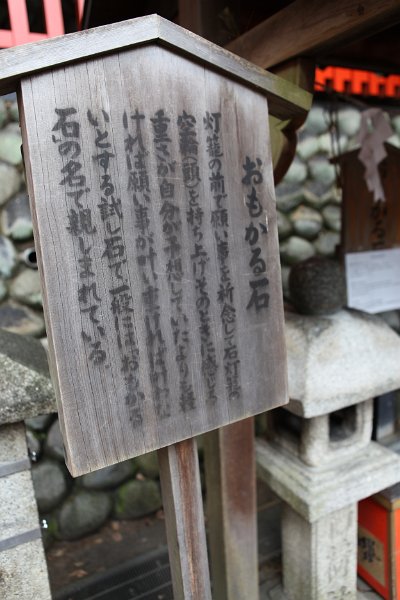 おもかる石
灯籠の前で願い事を祈念して石灯籠の
空輪(頭)を持ち上げそのときに感じる
重さが自分が予想していたよりも軽
ければ願い事が叶い、重ければ叶わな
いとする試し石で一般にはおもかる
石の名で親しまれている。